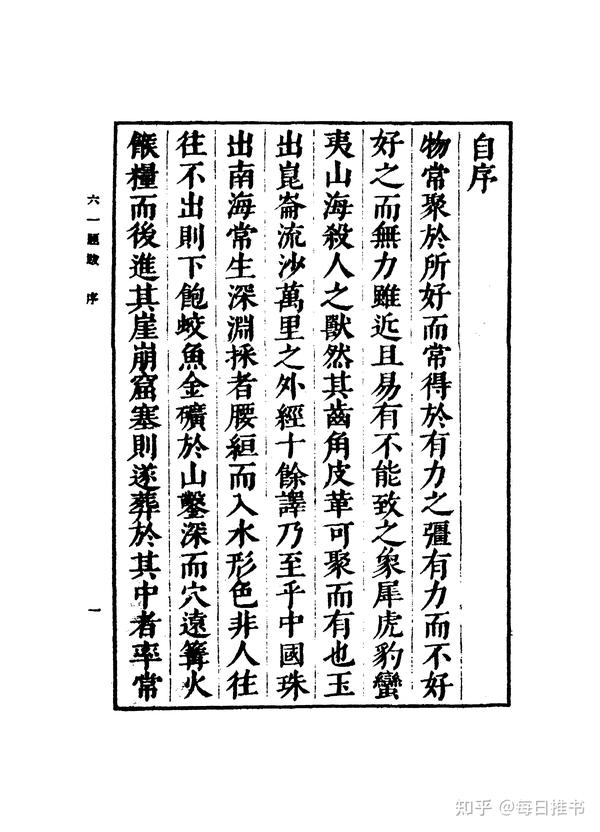 自序
物常聚於所好而常得於有力之彊有力而不好
好之而無力雖近且易有不能致之象犀虎豹蠻
夷山海殺人之獸然其齒角皮革可聚而有也玉
出崑崙流沙萬里之外經十餘譯乃至乎中國珠
出南海常生深淵採者腰絙而入水形色非人往
往不出則下飽蛟魚金礦於山鑿深而穴遠篝火
餱糧而後進其崖崩窟塞則遂葬於其中者率常
六一題跋 序
一
知乎 @每日推书